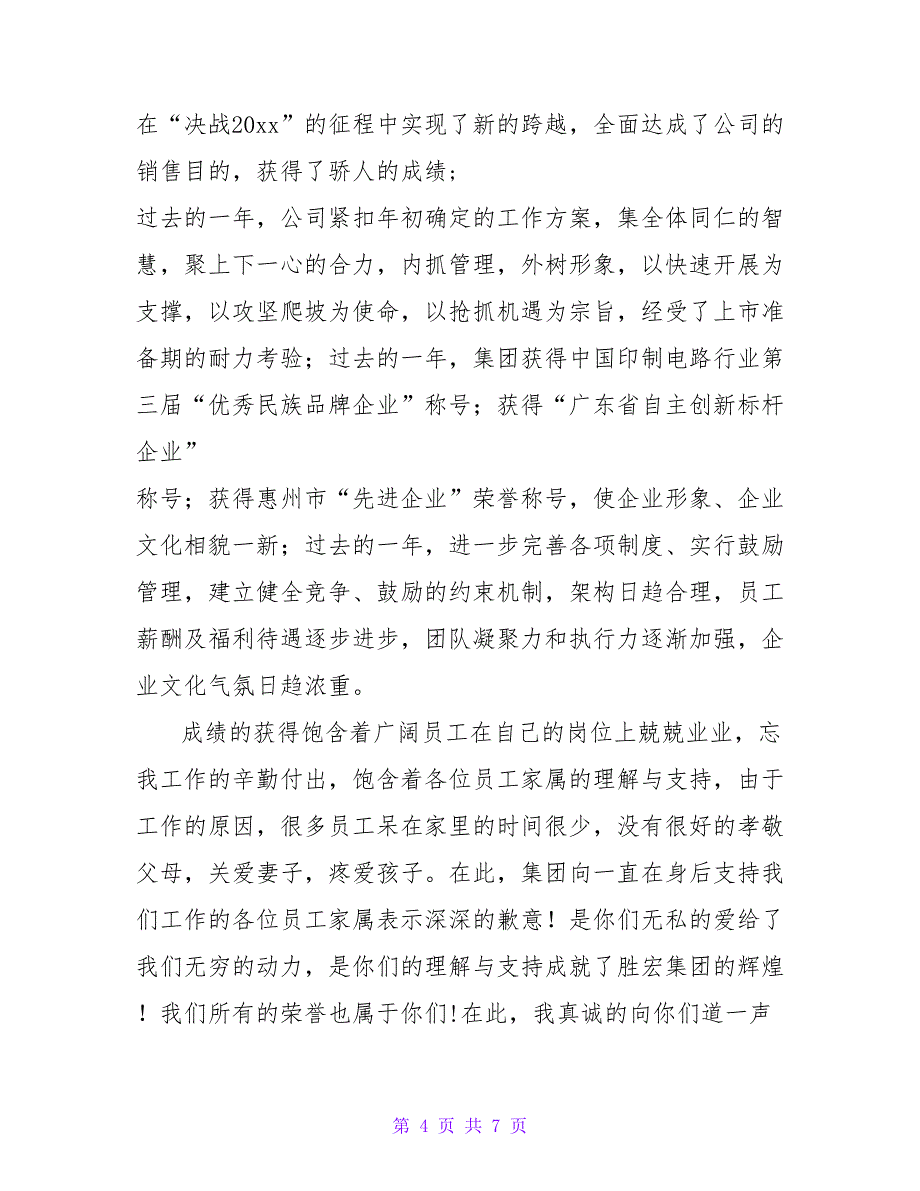 在“决战20xx”的征程中实现了新的跨越，全面达成了公司的
销售目的，获得了骄人的成绩；
过去的一年，公司紧扣年初确定的工作方案，集全体同仁的智
慧，聚上下一心的合力，内抓管理，外树形象，以快速开展为
支撑，以攻坚爬坡为使命，以抢抓机遇为宗旨，经受了上市准
备期的耐力考验；过去的一年，集团获得中国印制电路行业第
三届“优秀民族品牌企业”称号；获得“广东省自主创新标杆
企业”
称号；获得惠州市“先进企业”荣誉称号，使企业形象、企业
文化相貌一新；过去的一年，进一步完善各项制度、实行鼓励
管理，建立健全竞争、鼓励的约束机制，架构日趋合理，员工
薪酬及福利待遇逐步进步，团队凝聚力和执行力逐渐加强，企
业文化气氛日趋浓重。
成绩的获得饱含着广阔员工在自己的岗位上兢兢业业，忘
我工作的辛勤付出，饱含着各位员工家属的理解与支持，由于
工作的原因，很多员工呆在家里的时间很少，没有很好的孝敬
父母，关爱妻子，疼爱孩子。在此，集团向一直在身后支持我
们工作的各位员工家属表示深深的歉意！是你们无私的爱给了
我们无穷的动力，是你们的理解与支持成就了胜宏集团的辉煌
！我们所有的荣誉也属于你们!在此，我真诚的向你们道一声
第 4 页 共 7 页